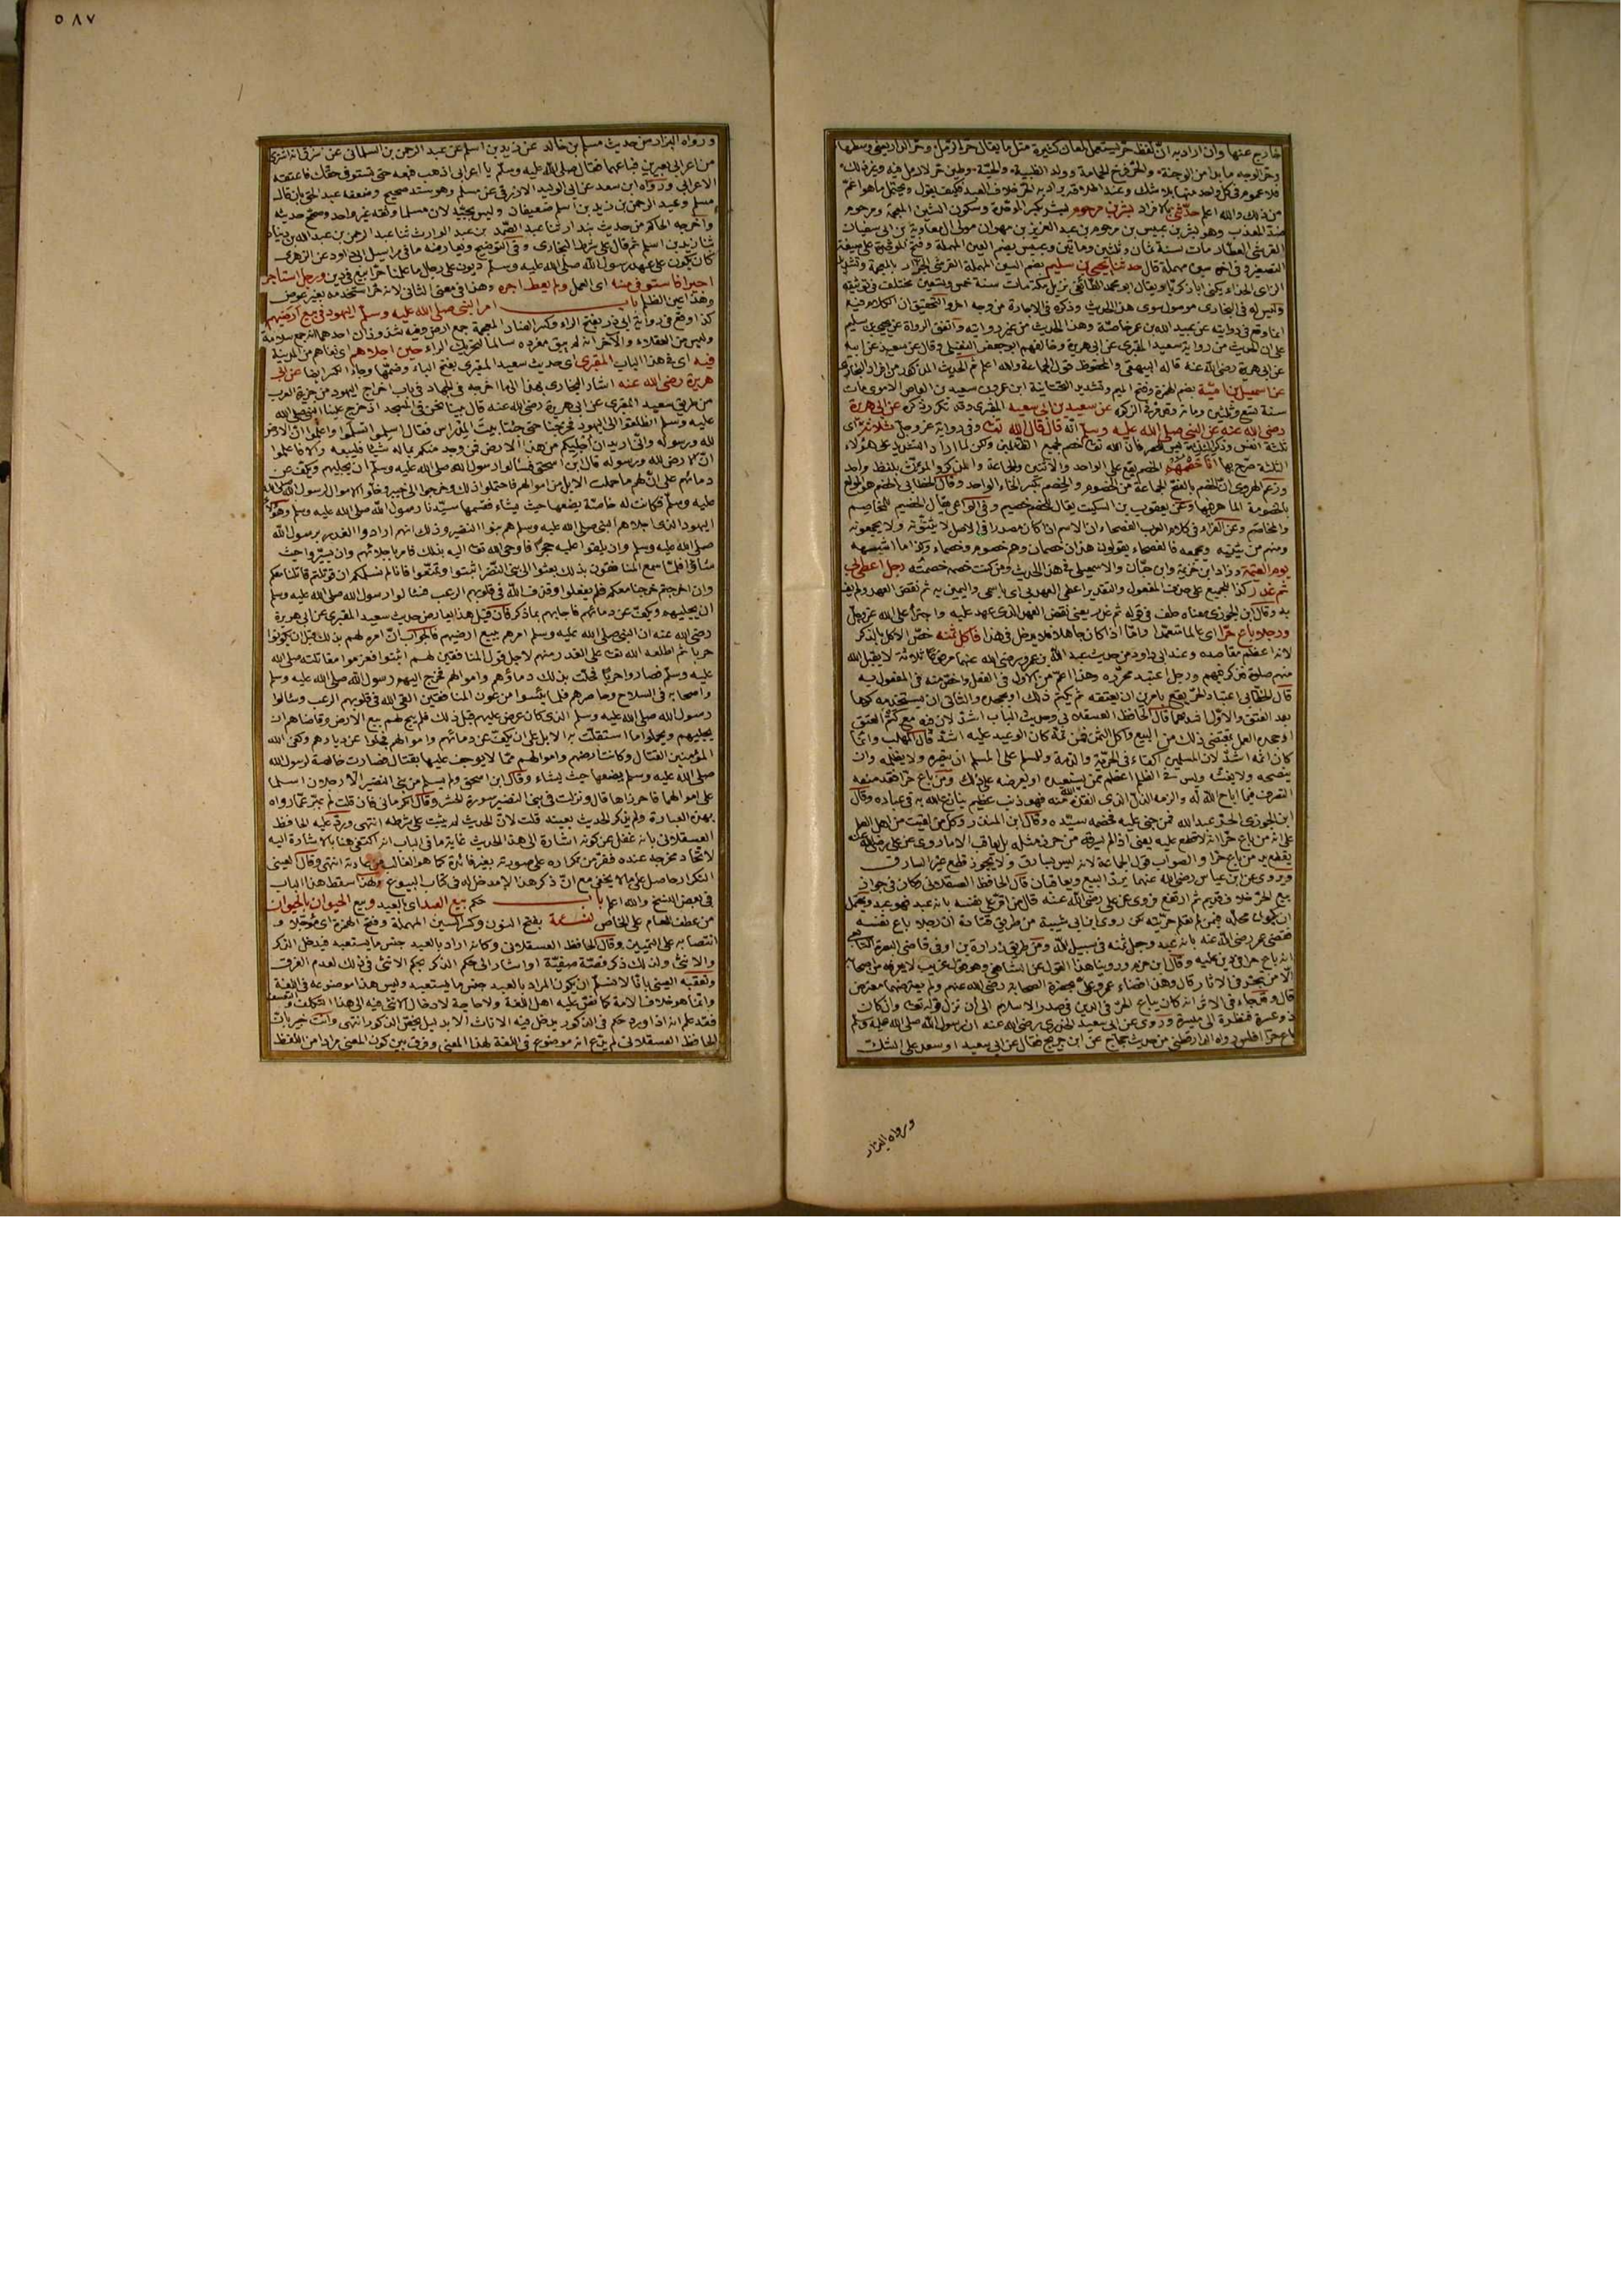 ٥٨٧
خارج عنها وان اراد به انّ لفظ حرّ يستعمل لمعان كثيرة مثل ما يقال حرّ الرمل وحرّ الدار يعني وسطها
وحرّ الوجه ما بدا من الوجنة والحرّ فرخ الحمامة وولد الظبية والحيّة وطين حرّ لا رمل فيه وغير ذلك
فلا عموم في كل واحد منها بلا شك وعند اطلاقه يراد به الحرّ خلاف العبد فكيف يقول ويحتمل ما هو اعمّ
من ذلك والله اعلم حدّثني بالافراد بشر بن مرحوم بشر بكسر الموحدة وسكون الشين المعجمة ومرحوم
ضدّ المعذب وهو بشر بن عبيس بن مرحوم بن عبد العزيز بن مهران مولى آل معاوية بن ابي سفيان
القرشي العطار مات سنة ثمان وثلثين ومائتين وعبيس بضم العين المهملة وفتح الموحدة على صيغة
التصغير وفي اخره سين مهملة قال حدثنا يحيى بن سليم بضم السين المهملة القرشي الخزّاز بالمعجمة وتشديد
الزاى الحذاء يكنى ابا زكريا ويقال ابو محمد الطائفي نزيل مكة مات سنة خمس وتسعين مختلف في توثيقه
وليس له في البخاري موصول سوى هذا الحديث وذكره في الاجارة من وجه اخر والتحقيق ان الكلام فيه
انما وقع في روايته عن عبيد الله بن عمر خاصّة وهذا الحديث من غير روايته واتفق الرواة عن يحيى بن سليم
على ان الحديث من رواية سعيد المقبري عن ابي هريرة وخالفهم ابو جعفر النفيلي فقال عن سعيد عن ابيه
عن ابي هريرة رضي الله عنه قاله البيهقي والمحفوظ قول الجماعة والله اعلم ثم الحديث المذكور من افراد البخاري
عن اسمعيل بن امية بضم الهمزة وفتح الميم وتشديد التحتانية ابن عمرو بن سعيد بن العاص الاموي مات
سنة تسع وثلثين ومائة وقد مرّ في الزكوة عن سعيد بن ابي سعيد المقبري وقد تكرر ذكره عن ابي هريرة
رضي الله عنه عن النبي صلى الله عليه وسلم انّه قال قال الله تعالى وفي رواية عز وجل ثلاثة اى
ثلثة انفس وذكر الثلاثة ليس للحصر فان الله تعالى خصم لجميع الظالمين ولكن لما اراد التشديد على هؤلاء
الثلثة صرّح بها انا خصمهم الخصم يقع على الواحد والاثنين والجماعة والمذكر والمؤنّث بلفظ واحد
وزعم الهروي انّ الخصم بالفتح الجماعة من الخصوم والخصم بكسر الخاء الواحد وقال الخطابي الخصم هو المولع
بالخصومة الماهر فيها وعن يعقوب بن السكيت يقال للخصم خصيم وفي الواعي يقال الخصيم للمخاصِم
والمخاصَم وعن الفراء في كلام العرب الفصحاء ان الاسم اذا كان مصدرا في الاصل لا يثنّونه ولا يجمعونه
ومنهم من يثنّيه ويجمعه فالفصحاء يقولون هذان خصمان وهم خصوم وخصماء وكذا ما اشبهه
يوم القيمة وزاد ابن خزيمة وابن حبّان والاسمعيلي في هذا الحديث ومن كنت خصمه خصمته رجل اعطى بي
ثم غدر كذا للجميع على حذف المفعول والتقدير اعطى العهد بي اى باسمي واليمين به ثم نقض العهد ولم يف
به وقال ابن الجوزي معناه حلف بي وقوله ثم غدر يعني نقض العهد الذي عهد عليه واجترأ على الله عز وجل
ورجل باع حرّا اى عالما متعمّدا وامّا اذا كان جاهلا فلا يدخل في هذا فاكل ثمنه خصّ الاكل بالذكر
لانه اعظم مقاصده وعند ابي داود من حديث عبد الله بن عمرو رضي الله عنهما مرفوعا ثلاثة لا يقبل الله
منهم صلوة فذكر فيهم ورجل اعتبد محرّره وهذا اعمّ من الاول في الفعل واخصّ منه في المفعول به
قال الخطابي اعتباد الحرّ يقع بامرين ان يعتقه ثم يكتم ذلك او يجحده والثاني ان يستخدمه كرها
بعد العتق والاوّل اشدهما قال الحافظ العسقلاني وحديث الباب اشدّ لان فيه مع كتم العتق
او جحده العمل بمقتضى ذلك من البيع واكل الثمن فمن ثمّة كان الوعيد عليه اشدّ قال المهلب وانما
كان اثمه اشدّ لان المسلمين اكفاء في الحرّية والذمة وللمسلم على المسلم ان ينصره ولا يظلمه وان
ينصحه ولا يغشّه وليس في الظلم اعظم ممن يستعبده او يعرضه على ذلك ومن باع حرّا فقد منعه
التصرف فيما اباح الله له والزمه الذلّ الذي انقذه الله منه فهو ذنب عظيم ينازع الله به في عباده وقال
ابن الجوزي الحرّ عبد الله فمن جنى عليه فخصمه سيّده وقال ابن المنذر وكل من لقيت من اهل العلم
على انه من باع حرّا انه لا قطع عليه يعني اذا لم يسرقه من حرز مثله بل يعاقب الا ما روى عن علي رضي الله عنه
يقطع يد من باع حرّا والصواب قول الجماعة لانه ليس بسارق ولا يجوز قطع غير السارق
وروى عن ابن عباس رضي الله عنهما يردّ البيع ويعاقبان قال الحافظ العسقلاني وكان في جواز
بيع الحرّ خلاف قديم ثم ارتفع فروى عن علي رضي الله عنه قال من اقرّ على نفسه بانه عبد فهو عبد ويحتمل
ان يكون محله فيمن لم تعلم حرّيته لكن روى ابن ابي شيبة من طريق قتادة انّ رجلا باع نفسه
فقضى عمر رضي الله عنه بانه عبد وجعل ثمنه في سبيل الله ومن طريق زرارة بن اوفى قاضي البصرة التابعي
انه باع حرا في دين عليه وقال ابن حزم وروينا هذا القول عن الشافعي وهو قول غريب لا يعرفه من اصحابه
الّا من تبحّر في الاثار قال وهذا قضاء عمر وعلي بحضرة الصحابة رضي الله عنهم ولم يعترضهما معترض
قال وقد جاء في الاثر انه كان يباع الحرّ في الدين في صدر الاسلام الى ان نزل قوله تعالى وان كان
ذو عسرة فنظرة الى ميسرة وروى عن ابي سعيد الخدري رضي الله عنه ان رسول الله صلى الله عليه وسلم
باع حرّا افلس رواه الدارقطني من حديث حجاج عن ابن جريج فقال عن ابي سعيد او سعد على الشكّ
ورواه البزار
ورواه البزار من حديث مسلم بن خالد عن زيد بن اسلم عن عبد الرحمن بن السلماني عن سرق انه اشترى
من اعرابي بعيرين فباعهما فقال صلى الله عليه وسلم يا اعرابي اذهب فبعه حتى تستوفي حقك فاعتقه
الاعرابي ورواه ابن سعد عن ابي الوليد الازرقي عن مسلم وهو سند صحيح وضعفه عبد الحق بان قال
مسلم وعبد الرحمن بن زيد بن اسلم ضعيفان وليس بجيّد لان مسلما وثقه غير واحد وصحّح حديثه
واخرجه الحاكم من حديث بندار ثنا عبد الصّمد بن عبد الوارث ثنا عبد الرحمن بن عبد الله بن دينار
ثنا زيد بن اسلم ثم قال على شرط البخاري وفي التوضيح ويعارضه ما في مراسيل ابي داود عن الزهري
كان يكون على عهد رسول الله صلى الله عليه وسلم ديون على رجل ما علمنا حرّا بيع في دين ورجل استاجر
اجيرا فاستوفى منه اى العمل ولم يعط اجره وهذا في معنى الثاني لانه كمن استخدمه بغير عوض
وهذا عين الظلم باب امر النبي صلى الله عليه وسلم اليهود في بيع ارضيهم
كذا وقع في رواية ابي ذر بفتح الراء وكسر الضاد المعجمة جمع ارض وفيه شذوذان احدهما انه جمع سلامة
وليس من العقلاء والآخر انه لم يبق مفرده سالما لتحريك الراء حين اجلاهم اى نفاهم من المدينة
فيه اى في هذا الباب المقبري اى حديث سعيد المقبري بفتح الباء وضمّها وجاء الكسر ايضا عن ابي
هريرة رضي الله عنه اشار البخاري بهذا الى ما اخرجه في الجهاد في باب اخراج اليهود من جزيرة العرب
من طريق سعيد المقبري عن ابي هريرة رضي الله عنه قال بينا نحن في المسجد اذ خرج علينا النبي صلى الله
عليه وسلم انطلقوا الى اليهود فخرجنا حتى جئنا بيت المدراس فقال اسلموا تسلموا واعلموا انّ الارض
لله ورسوله وانّي اريد ان اجليكم من هذا الارض فمن وجد منكم بماله شيئا فليبعه والا فاعلموا
انّ الارض لله ورسوله قال ابن اسحق فسألوا رسول الله صلى الله عليه وسلم ان يجليهم ويكفّ عن
دمائهم على انّ لهم ما حملت الابل من اموالهم فاحتملوا ذلك وخرجوا الى خيبر وخلّوا الاموال لرسول الله صلى الله
عليه وسلم فكانت له خاصّة يضعها حيث يشاء فقسمها سيّدنا رسول الله صلى الله عليه وسلم وهؤلاء
اليهود الذي اجلاهم النبي صلى الله عليه وسلم هم بنوا النضير وذلك انهم ارادوا الغدر برسول الله
صلى الله عليه وسلم وان يلقوا عليه حجرًا فاوحى الله تعالى اليه بذلك فامر باجلائهم وان يسيّروا حيث
شاؤا فلمّا سمع المنافقون بذلك بعثوا الى بني النضير اثبتوا وتمنّعوا فانا لم نسلمكم ان قوتلتم قاتلنا معكم
وان اخرجتم خرجنا معكم فلم يفعلوا وقذف الله في قلوبهم الرعب فسألوا رسول الله صلى الله عليه وسلم
ان يجليهم ويكفّ عن دمائهم فاجابهم بما ذكر فان قيل هذا يعارض حديث سعيد المقبري عن ابي هريرة
رضي الله عنه ان النبي صلى الله عليه وسلم امرهم ببيع ارضيهم فالجواب انّ امره لهم بذلك قبل ان يكونوا
حربا ثم اطلعه الله تعالى على الغدر منهم لاجل قول المنافقين لهم اثبتوا فعزموا مقاتلته صلى الله
عليه وسلم فصاروا حربًا فحلّت بذلك دماؤهم واموالهم فخرج اليهم رسول الله صلى الله عليه وسلم
واصحابه في السلاح وحاصرهم فلما يئسوا من عون المنافقين القى الله في قلوبهم الرعب وسألوا
رسول الله صلى الله عليه وسلم الذي كان عرض عليهم قبل ذلك فلم يبح لهم بيع الارض وقاضاهم ان
يجليهم ويحملوا ما استقلّت به الابل على ان يكفّ عن دمائهم واموالهم فجلوا عن ديارهم وكفى الله
المؤمنين القتال وكانت ارضهم واموالهم ممّا لا يوجف عليها بقتال فصارت خالصة لرسول الله
صلى الله عليه وسلم يضعها حيث يشاء وقال ابن اسحق ولم يسلم من بني النضير الّا رجلان اسلما
على اموالهما فاحرزاها قال ونزلت في بني النضير سورة الحشر وقال الكرماني فان قلت لم عبّر عمّا رواه
بهذه العبارة ولم يذكر الحديث بعينه قلت لانّ الحديث لم يثبت على شرطه انتهى وردّ عليه الحافظ
العسقلاني بانه غفل عن كونه اشارة الى هذا الحديث غاية ما في الباب انه اكتفى هنا بالاشارة اليه
لاتّحاد مخرجه عنده ففرّ من تكراره على صورته بغير فائدة كما هو الغالب من عادته انتهى وقال العيني
التكرار حاصل على ما لا يخفى مع انّ ذكر هذا لا مدخل له في كتاب البيوع ولهذا سقط هذا الباب
في بعض النسخ والله اعلم باب حكم بيع العبد اى بالعبد وبيع الحيوان بالحيوان
من عطف العام على الخاص نسيئة بفتح النون وكسر السين المهملة وفتح الهمزة اى مؤجّلا و
انتصابه على التمييز وقال الحافظ العسقلاني وكانه اراد بالعبد جنس ما يستعبد فيدخل الذكر
والانثى ولذلك ذكر قصّة صفيّة او اشار الى حكم الذكر بحكم الانثى في ذلك لعدم الفرق
وتعقبه العيني بانّا لا نسلّم ان يكون المراد بالعبد جنس ما يستعبد وليس هذا موضوعه في اللغة
وانّما هو خلاف الامة كما نصّ عليه اهل اللغة ولا حاجة لادخال الانثى فيه الى هذا التكلف والتعسف
فقد علم انه اذا ورد حكم في الذكور يدخل فيه الاناث الا بدليل يخصّ الذكور انتهى وانت خبير بانّ
الحافظ العسقلاني لم يدّع انه موضوع في اللغة لهذا المعنى وفرق بين كون المعنى مرادا من اللفظ